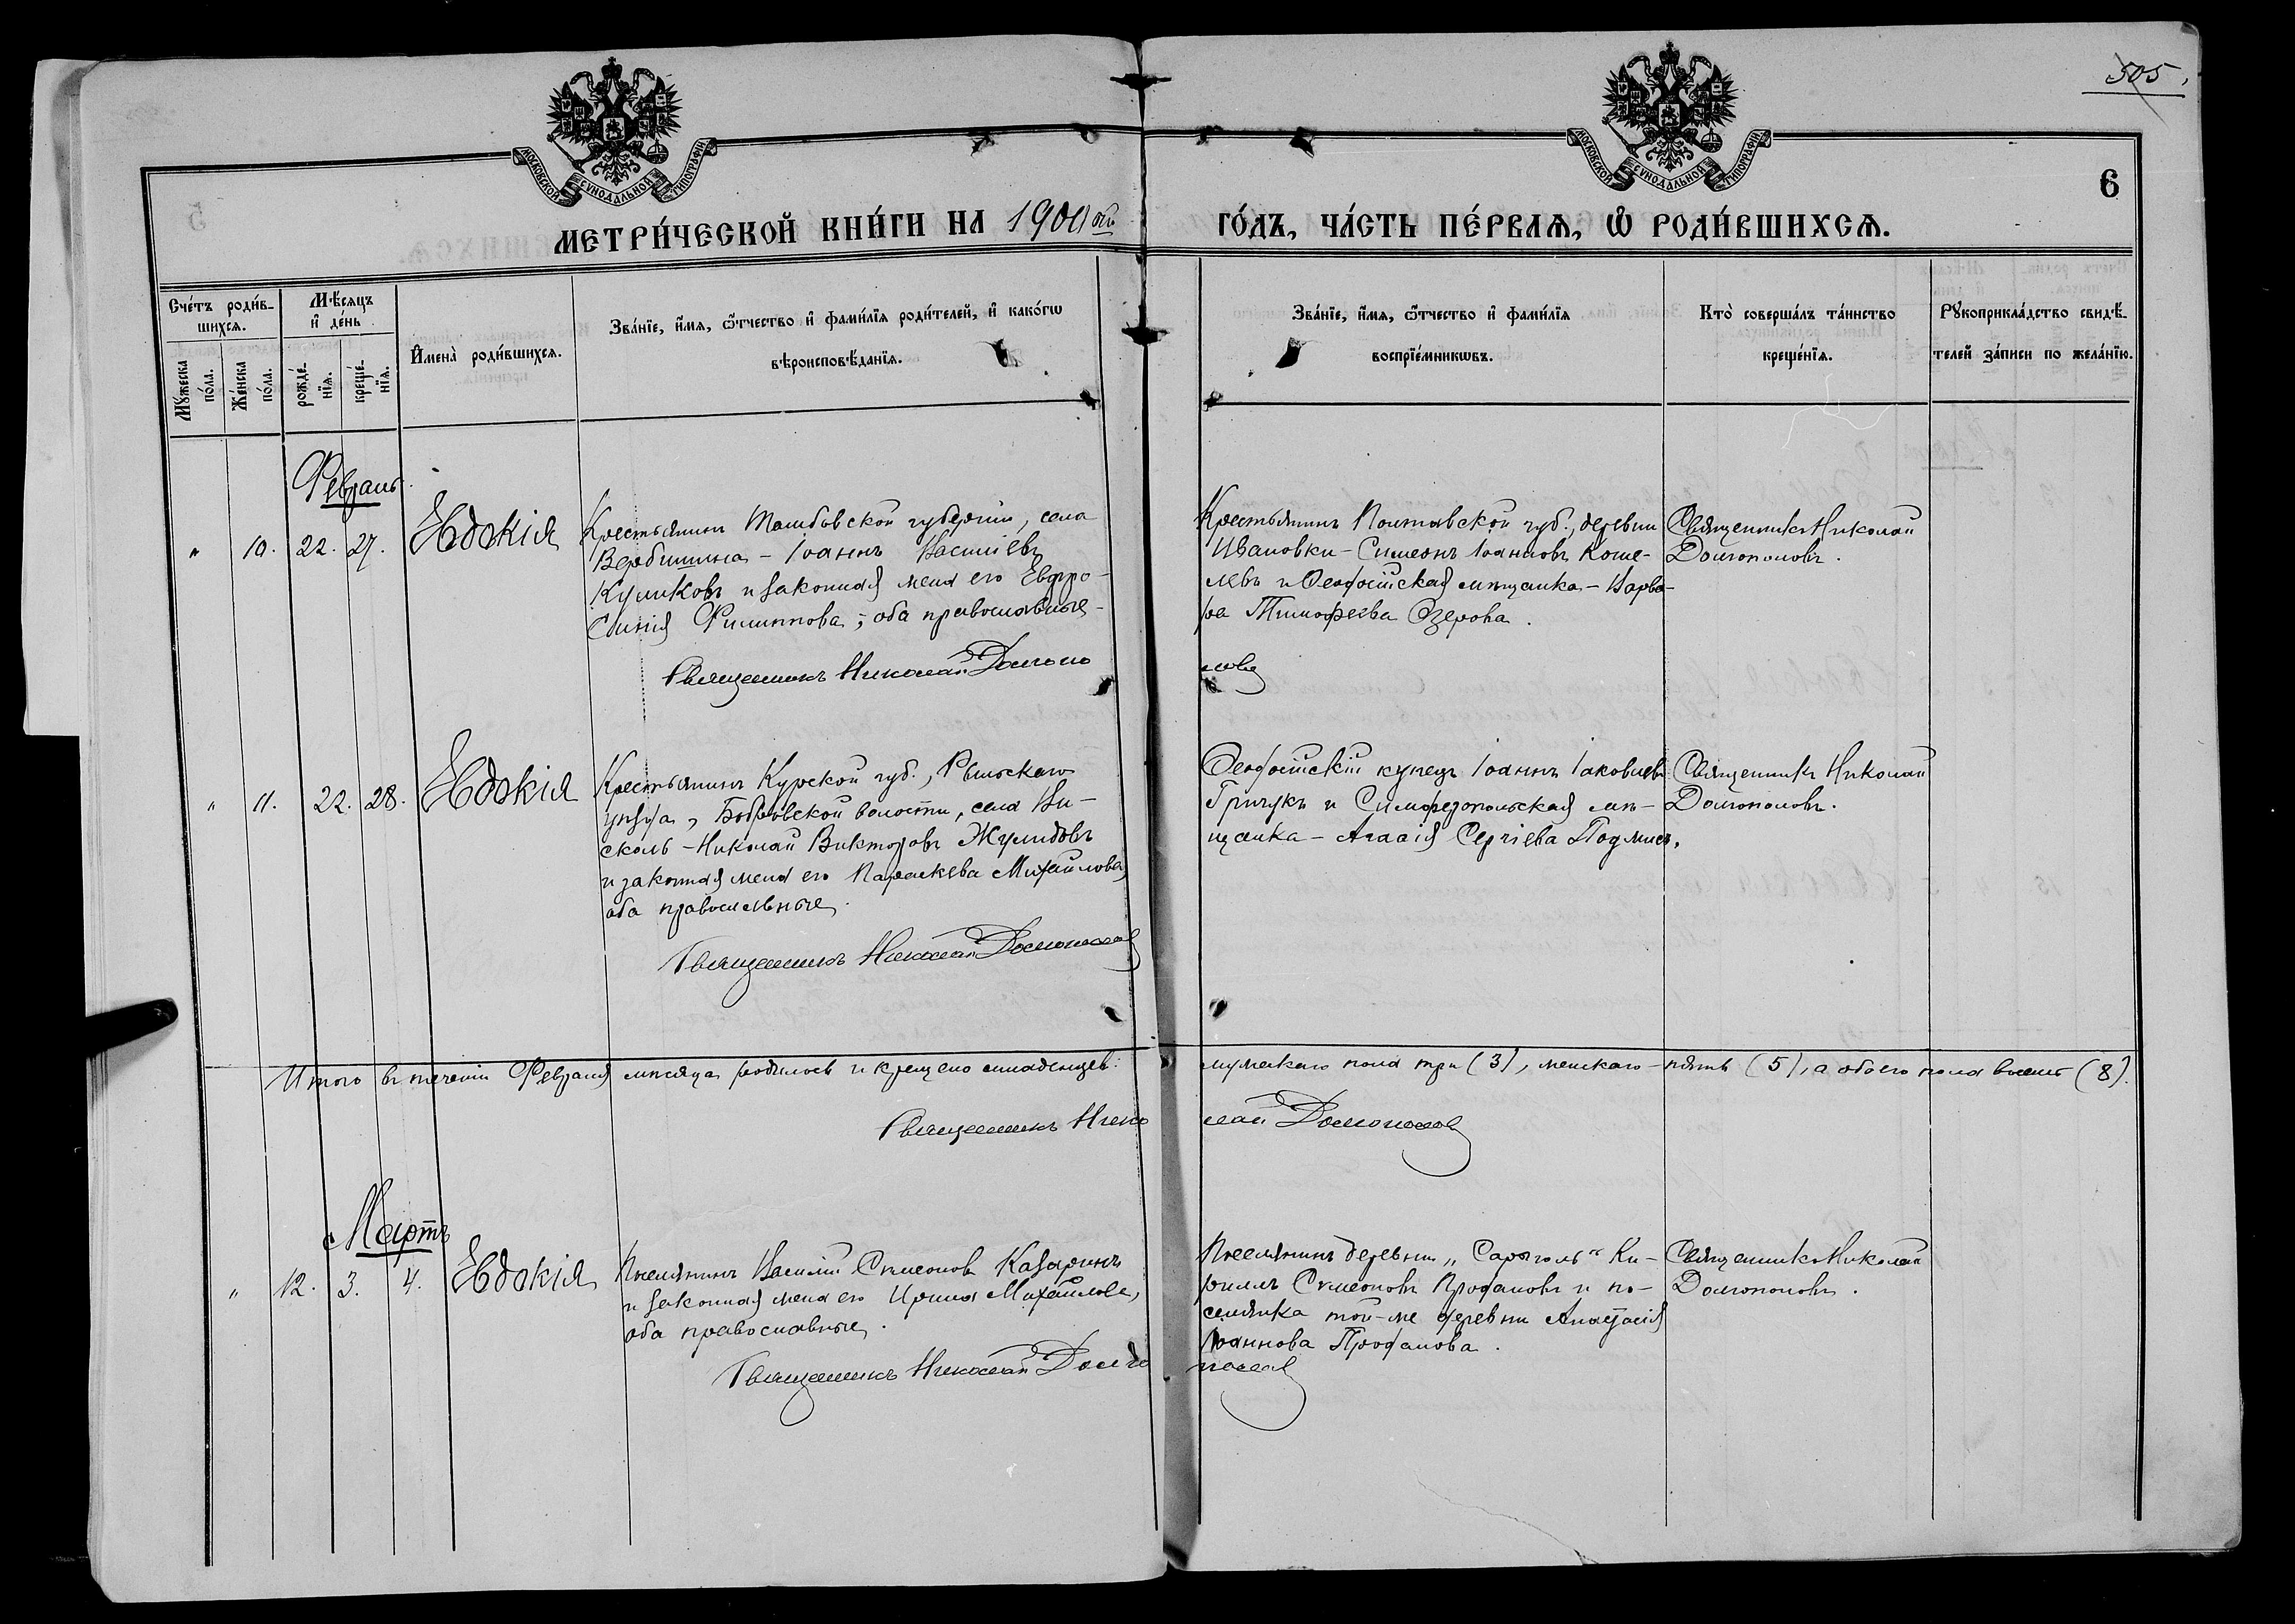 505
6
МОСКОВСКОЙ СѴНОДАЛЬНОЙ ТИПОГРАФІИ
МОСКОВСКОЙ СѴНОДАЛЬНОЙ ТИПОГРАФІИ
МЕТРИ́ЧЕСКОЙ КНИ́ГИ НА 1900ый ГО́ДЪ, ЧА́СТЬ ПЕ́РВАѦ, Ѽ РОДИ́ВШИХСѦ.
Сче́тъ роди́в-
шихсѧ.
Мꙋ́жеска
по́ла.
Же́нска
по́ла.
М́ѣсѧцъ
и҆ де́нь
рожде́-
нїѧ.
креще́-
нїѧ.
И҆мена̀ роди́вшихсѧ.
Зва́нїе, и҆́мѧ, ѻ҆́тчество и҆ фами́лїѧ роди́телей, и҆ како́гѡ
вѣроисповѣ́данїѧ.
Зва́нїе, и҆́мѧ, ѻ҆́тчество и҆ фами́лїѧ
воспрїе́мникѡвъ.
Кто̀ соверша́лъ та́инство
креще́нїѧ.
Рꙋкоприкла́дство свидѣ́-
телей за́писи по жела́нїю.
Февраль
" 10. 22. 27. Евдокія
Крестьянинъ Тамбовской губерніи, села
Вербилина - Іоаннъ Васильевъ
Куликовъ и законная жена его Евфро-
синія Филиппова; оба православные
Священникъ Николай Долгопо
Крестьянинъ Полтавской губ., деревни
Ивановки - Симеонъ Іоанновъ Коше-
левъ и Ѳеодосійская мѣщанка - Варва-
ра Тимофеева Озерова.
ловъ
Священникъ Николай
Долгополовъ.
" 11. 22. 28. Евдокія
Крестьянинъ Курской губ., Рыльскаго
уѣзда, Бобровской волости, села Ви-
сколь - Николай Викторовъ Жулидовъ
и законная жена его Параскева Михайлова,
оба православные.
Священникъ Николай Долгополовъ
Ѳеодосійскій купецъ Іоаннъ Іаковлевъ
Гричукъ и Симферопольская мѣ-
щанка - Агаѳія Сергіева
Священникъ Николай
Долгополовъ.
Итого въ теченіи Февраля мѣсяца родилось и крещено младенцевъ: мужскаго пола три (3), женскаго - пять (5), а обоего пола восемь (8).
Священникъ Нико
лай Долгополовъ
Мартъ
" 12. 3. 4. Евдокія
Поселянинъ Василій Симеоновъ Казаринъ
и законная жена его Ирина Михайлова,
оба православные.
Священникъ Николай Долго
Поселянинъ деревни „Сарыголь“ Ки-
риллъ Симеоновъ Продановъ и по-
селянка той-же деревни Анастасія
Іоаннова Проданова.
половъ
Священникъ Николай
Долгополовъ.